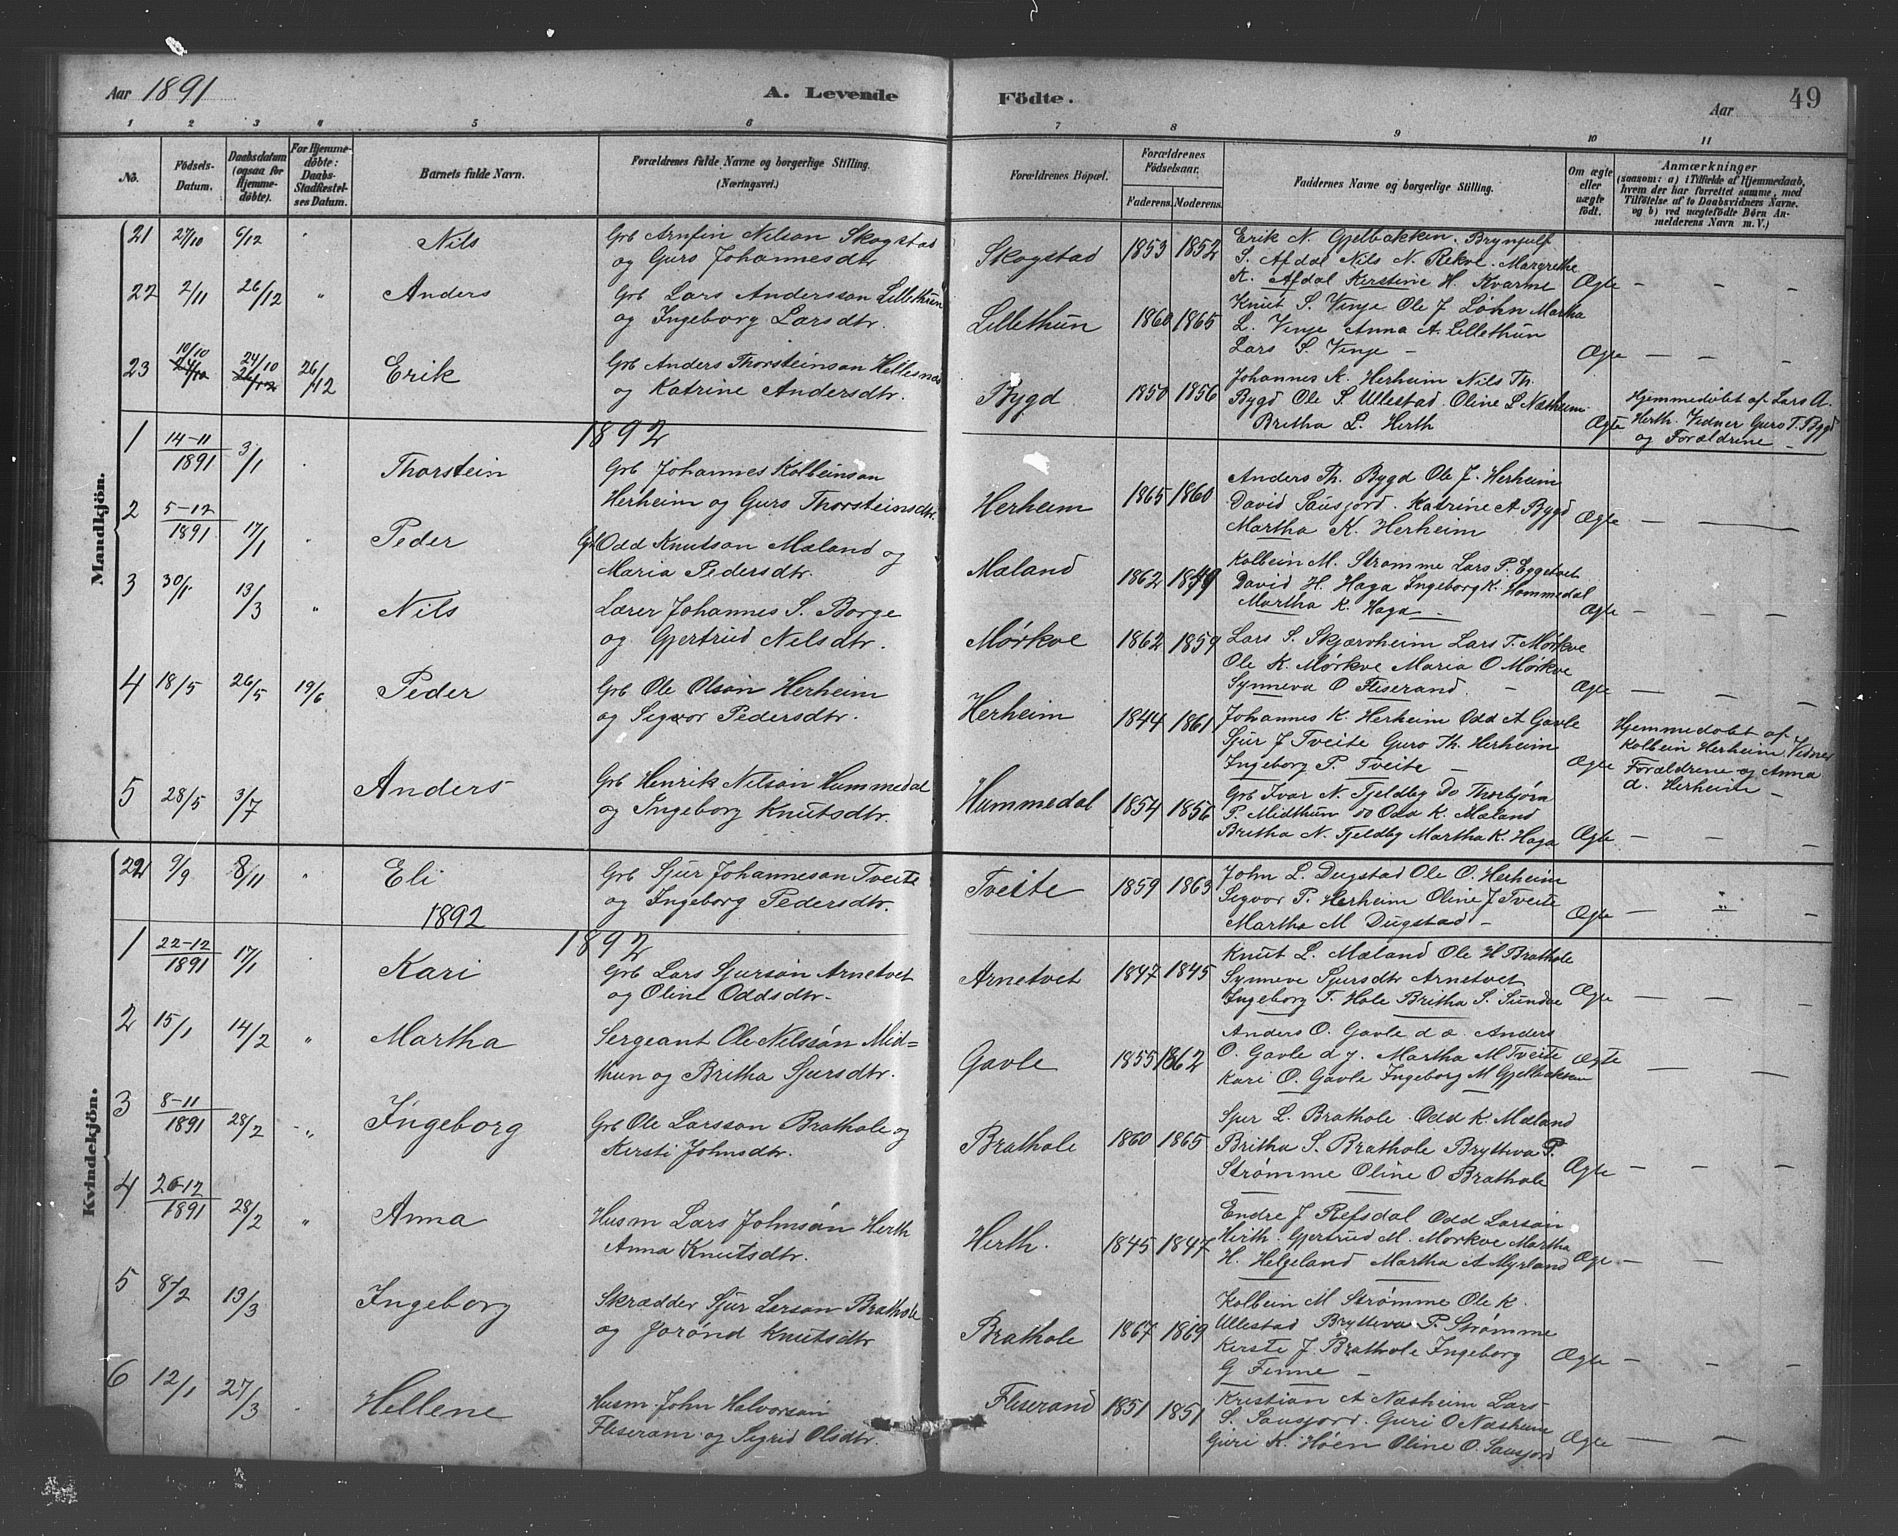 Aar 1891 A. Levende Födte. Aar 49
1 2 3 4 5 6 7 8 9 10 11
No. Födsels-Datum. Daabsdatum (ogsaa for Hjemmedöbte). For Hjemmedöbte: Daabs-Stadfæstelses Datum. Barnets fulde Navn. Forældrenes fulde Navne og borgerlige Stilling. (Næringsvei.) Forældrenes Bopæl. Forældrenes Födselsaar. Faderens. Moderens. Faddernes Navne og borgerlige Stilling. Om ægte eller uægte födt. Anmærkninger (saasom: a) i Tilfælde af Hjemmedaab, hvem der har forrettet samme, med Tilföielse af to Daabsvidners Navne. og b) ved uægtefödte Börn Anmelderens Navn m. V.)
Mandkjön.
21 27/10 6/12 " Nils Grb Arnfin Nilson Skogstad
og Guro Johannesdtr Skogstad 1853 1852 Erik N. Gjelbakken. Brynjulf
S. Afdal Nils N. Rekve. Margrethe
K. Afdal Kerstine H. Kvarme Ægte – – –
22 2/11 26/12 " Anders Grb Lars Andersson Lillethun
og Ingeborg Larsdtr. Lillethun 1860 1865 Knut S. Vinje Ole J. Løhn Martha
L. Vinje Anna A. Lillethun
Lars S. Vinje – Ægte – – –
23 10/10 24/10 26/12 Erik Grb Anders Thorsteinson Hellesnes
26/12
og Katrine Andersdtr. Bygd 1850 1856 Johannes K. Herheim Nils Th.
Bygd Ole S. Ullestad. Oline L Næsheim
Britha L. Herth Ægte Hjemmedøbt af Lars A.
Herth. Vidner Guro T. Bygd
og Forældrene –
1892
1 14-11 1891 3/1 " Thorstein Grb Johannes Kolbeinson
Herheim og Guro Thorsteinsdtr. Herheim 1865 1860 Anders Th. Bygd Ole J. Herheim
David Sausjord. Katrine A Bygd
Martha K. Herheim Ægte – –
2 5-12 1891 17/1 " Peder Grb Odd Knutson Mæland og
Maria Pedersdtr. Mæland 1862 1849 Kolbein M. Strømme Lars P. Eggetvet
David H. Haga Ingeborg K. Hommedal
Martha K. Haga – Ægte – – –
3 30/1 13/3 " Nils Lærer Johannes S. Borge
og Gjertrud Nilsdtr. Mørkve 1862 1859 Lars S. Skjærvheim Lars T. Mørkve
Ole K. Mørkve Maria O Mørkve
Synneva O Fliserand. – Ægte – – –
4 18/5 26/5 19/6 Peder Grb Ole Olson Herheim
og Sigvor Pedersdtr. Herheim 1844 1861 Johannes K. Herheim Odd A Gavle
Sjur J Tveite Guro Th. Herheim
Ingeborg P. Tveite – Ægte Hjemmedøbt af
Kolbein Herheim. Vidner
Forældrene og Anna
d. Herheim –
5 28/5 3/7 Anders Grb Henrik Nilson Hummedal
og Ingeborg Knutsdtr. Hummedal 1854 1856 Grb Ivar N. Tjeldby do Thorbjørn
P. Midthun do Odd K. Mæland
Britha N. Tjeldby Martha K. Haga Ægte – – –
Kvindekjön.
22 9/9 8/11 " Eli Grb Sjur Johanneson Tveite
og Ingeborg Pedersdtr. Tveite 1859 1863 John L. Dugstad Ole O. Herheim
Sigvor P. Herheim Oline J Tveite
Martha M Dugstad – Ægte – " –
1892
1892
1 22-12 1891 17/1 " Kari Grb Lars Sjurson Arnetvet
og Oline Oddsdtr. Arnetvet 1847 1845 Knut L. Mæland Ole H Brathole
Synneve Sjursdtr Arnetvet
Ingeborg T. Hole Britha S. Tundve Ægte – – –
2 15/1 14/2 " Martha Sergeant Ole Nilsson Mid=
thun og Britha Sjursdtr. Gavle 1855 1862 Anders O. Gavle d æ. Anders
O. Gavle d y. Martha M Tveite
Kari O. Gavle Ingeborg M Gjelbakken Ægte – – –
3 8-11 1891 28/2 " Ingeborg Grb Ole Larsson Brathole og
Kersti Johnsdtr. Brathole 1860 1865 Sjur L. Brathole. Odd K. Mæland
Britha S. Brathole Brytteva P.
Strømme Oline O Brathole Ægte – – –
4 26-12 1891 28/2 " Anna Husm Lars Johnson Herth
Anna Knutsdtr. Herth. 1845 1847 Endre J Refsdal Odd Larson
Herth. Gjertrud M. Mørkve Martha
H. Helgeland Martha A Myrland Ægte – – –
5 8/2 13/3 Ingeborg Skrædder Sjur Larson Brathole
og Jorønd Knutsdtr Brathole 1867 1869 Kolbein M Strømme Ole K.
Ullestad Brytteva P. Strømme
Kersti J Brathole Ingeborg
G Finne – Ægte – – –
6 12/1 27/3 Hellene Husm. John Halvorson
Fliseram og Sigrid Olsdtr. Fliserand 1851 1851 Kristian A Næsheim Lars
S. Sausjord. Guri O Næsheim
Guri K. Høen Oline O. Sausjord Ægte – – –